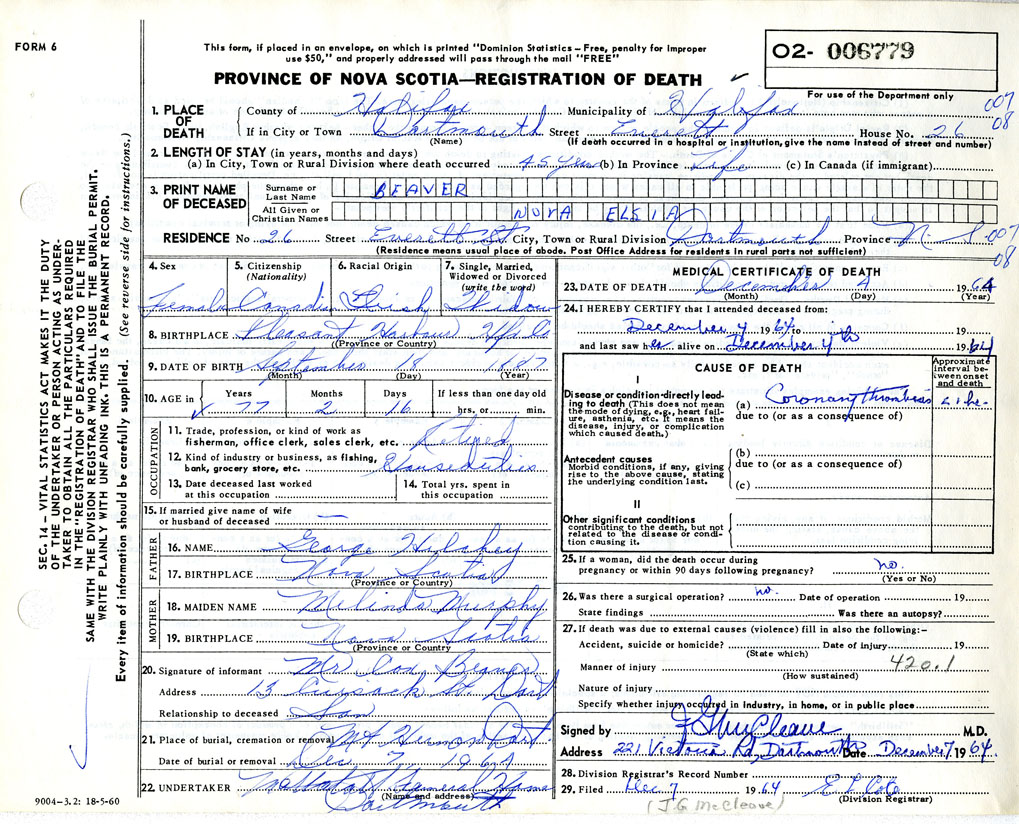 FORM 6
This form, if placed in an envelope, on which is printed "Dominion Statistics – Free, penalty for improper
use $50," and properly addressed will pass through the mail "FREE"
O2- 006779
PROVINCE OF NOVA SCOTIA—REGISTRATION OF DEATH ✓
For use of the Department only
007
08
1. PLACE OF DEATH
County of Halifax Municipality of Halifax
If in City or Town Dartmouth Street Everett House No. 26
(Name) (If death occurred in a hospital or institution, give the name instead of street and number)
2. LENGTH OF STAY (in years, months and days)
(a) In City, Town or Rural Division where death occurred 45 Years (b) In Province Life (c) In Canada (if immigrant)
3. PRINT NAME OF DECEASED
Surname or Last Name BEAVER
All Given or Christian Names NOVA ELSIA
RESIDENCE No 26 Street Everett St. City, Town or Rural Division Dartmouth Province N.S. 007
08
(Residence means usual place of abode. Post Office Address for residents in rural parts not sufficient)
4. Sex Female
5. Citizenship (Nationality) Canadian
6. Racial Origin Irish
7. Single, Married, Widowed or Divorced (write the word) Widow
8. BIRTHPLACE Pleasant Harbour Hfx Co
(Province or Country)
9. DATE OF BIRTH September 18 1887
(Month) (Day) (Year)
10. AGE in Years Months Days If less than one day old
✓ 77 2 16 hrs. or min.
OCCUPATION
11. Trade, profession, or kind of work as
fisherman, office clerk, sales clerk, etc. Retired
12. Kind of industry or business, as fishing,
bank, grocery store, etc. Houseduties
13. Date deceased last worked
at this occupation
14. Total yrs. spent in
this occupation
15. If married give name of wife
or husband of deceased —
FATHER
16. NAME George Hilchey
17. BIRTHPLACE Nova Scotia
(Province or Country)
MOTHER
18. MAIDEN NAME Melinda Murphy
19. BIRTHPLACE Nova Scotia
(Province or Country)
20. Signature of informant Mr Beaver
Address 13 Cusack St. Dart
Relationship to deceased Son
21. Place of burial, cremation or removal Mt Hermon Dart
Date of burial or removal Dec. 7, 1964
22. UNDERTAKER Funeral Home
(Name and address) Dartmouth
9004-3.2: 18-5-60
MEDICAL CERTIFICATE OF DEATH
23. DATE OF DEATH December 4 1964
(Month) (Day) (Year)
24. I HEREBY CERTIFY that I attended deceased from:
December 4 1964 to 19
and last saw her alive on December 4th 1964
CAUSE OF DEATH
Approximate interval between onset and death
I
Disease or condition-directly leading to death (This does not mean the mode of dying, e.g., heart failure, asthenia, etc. It means the disease, injury, or complication which caused death.)
(a) Coronary thrombosis
due to (or as a consequence of)
Antecedent causes
Morbid conditions, if any, giving rise to the above cause, stating the underlying condition last.
(b)
due to (or as a consequence of)
(c)
II
Other significant conditions
contributing to the death, but not related to the disease or condition causing it.
25. If a woman, did the death occur during
pregnancy or within 90 days following pregnancy? no.
(Yes or No)
26. Was there a surgical operation? no. Date of operation 19
State findings Was there an autopsy?
27. If death was due to external causes (violence) fill in also the following:–
Accident, suicide or homicide? Date of injury 19
(State which)
Manner of injury 420.1
(How sustained)
Nature of injury
Specify whether injury occurred in industry, in home, or in public place
Signed by J G McCleave M.D.
Address 221 Victoria Rd, Dartmouth Date December 7 1964
28. Division Registrar's Record Number
29. Filed Dec 7 1964
(Division Registrar)
(J.G. McCleave)
SEC. 14 – VITAL STATISTICS ACT MAKES IT THE DUTY
OF THE UNDERTAKER OR PERSON ACTING AS UNDER-
TAKER TO OBTAIN ALL THE PARTICULARS REQUIRED
IN THE "REGISTRATION OF DEATH" AND TO FILE THE
SAME WITH THE DIVISION REGISTRAR WHO SHALL ISSUE THE BURIAL PERMIT.
WRITE PLAINLY WITH UNFADING INK. THIS IS A PERMANENT RECORD.
Every item of information should be carefully supplied. (See reverse side for instructions.)